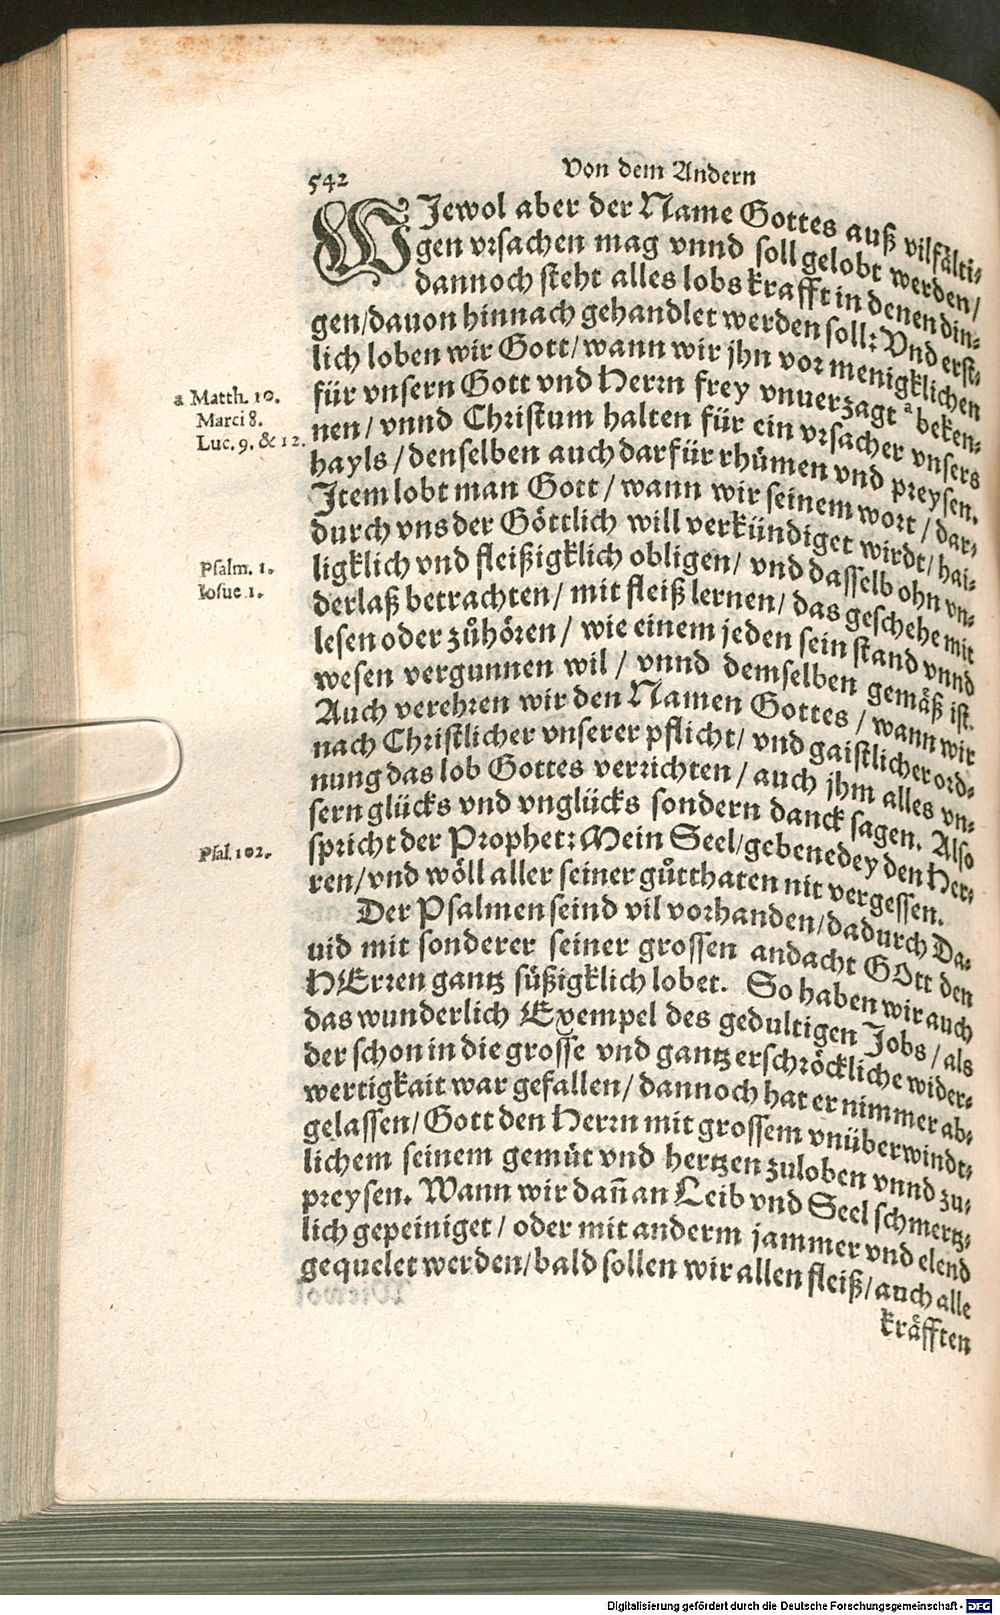 542
Von dem Andern
WJewol aber der Name Gottes auß vilfälti⸗
gen vrsachen mag vnnd soll gelobt werden/
dannoch steht alles lobs krafft in denen din⸗
gen/dauon hinnach gehandlet werden soll: Vnd erst⸗
lich loben wir Gott/wann wir jhn vor menigklichen
für vnsern Gott vnd Herrn frey vnuerzagt a beken⸗
nen/ vnnd Christum halten für ein vrsacher vnsers
hayls/denselben auch darfür rhümen vnd preysen.
Jtem lobt man Gott/ wann wir seinem wort/ dar⸗
durch vns der Göttlich will verkündiget wirdt/ hai⸗
ligklich vnd fleißigklich obligen/ vnd dasselb ohn vn⸗
derlaß betrachten/ mit fleiß lernen/ das geschehe mit
lesen oder zůhören/ wie einem jeden sein stand vnnd
wesen vergunnen wil/ vnnd demselben gemäß ist.
Auch verehren wir den Namen Gottes/ wann wir
nach Christlicher vnserer pflicht/ vnd gaistlicher ord⸗
nung das lob Gottes verrichten/ auch jhm alles vn⸗
sern glücks vnd vnglücks sondern danck sagen. Also
spricht der Prophet: Mein Seel/gebenedey den Her⸗
ren/vnd wöll aller seiner gůtthaten nit vergessen.
Der Psalmen seind vil vorhanden/dadurch Da⸗
uid mit sonderer seiner grossen andacht GOtt den
HErren gantz süßigklich lobet. So haben wir auch
das wunderlich Exempel des gedultigen Jobs/ als
der schon in die grosse vnd gantz erschröckliche wider⸗
wertigkait war gefallen/ dannoch hat er nimmer ab⸗
gelassen/ Gott den Herrn mit grossem vnüberwindt⸗
lichem seinem gemüt vnd hertzen zuloben vnnd zu⸗
preysen. Wann wir dañ an Leib vnd Seel schmertz⸗
lich gepeiniget/ oder mit anderm jammer vnd elend
gequelet werden/bald sollen wir allen fleiß/auch alle
kräfften
a Matth. 10.
Marci 8.
Luc. 9. & 12.
Psalm. 1.
Iosue 1.
Psal. 102.
Digitalisierung gefördert durch die Deutsche Forschungsgemeinschaft - DFG